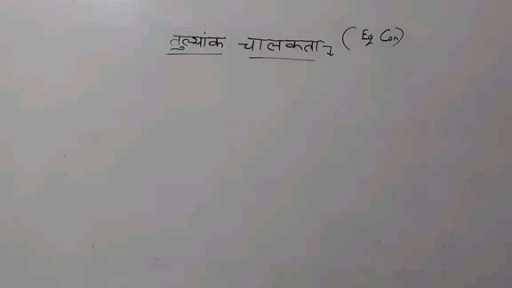 तुल्यांक चालकता, (Eq Con)